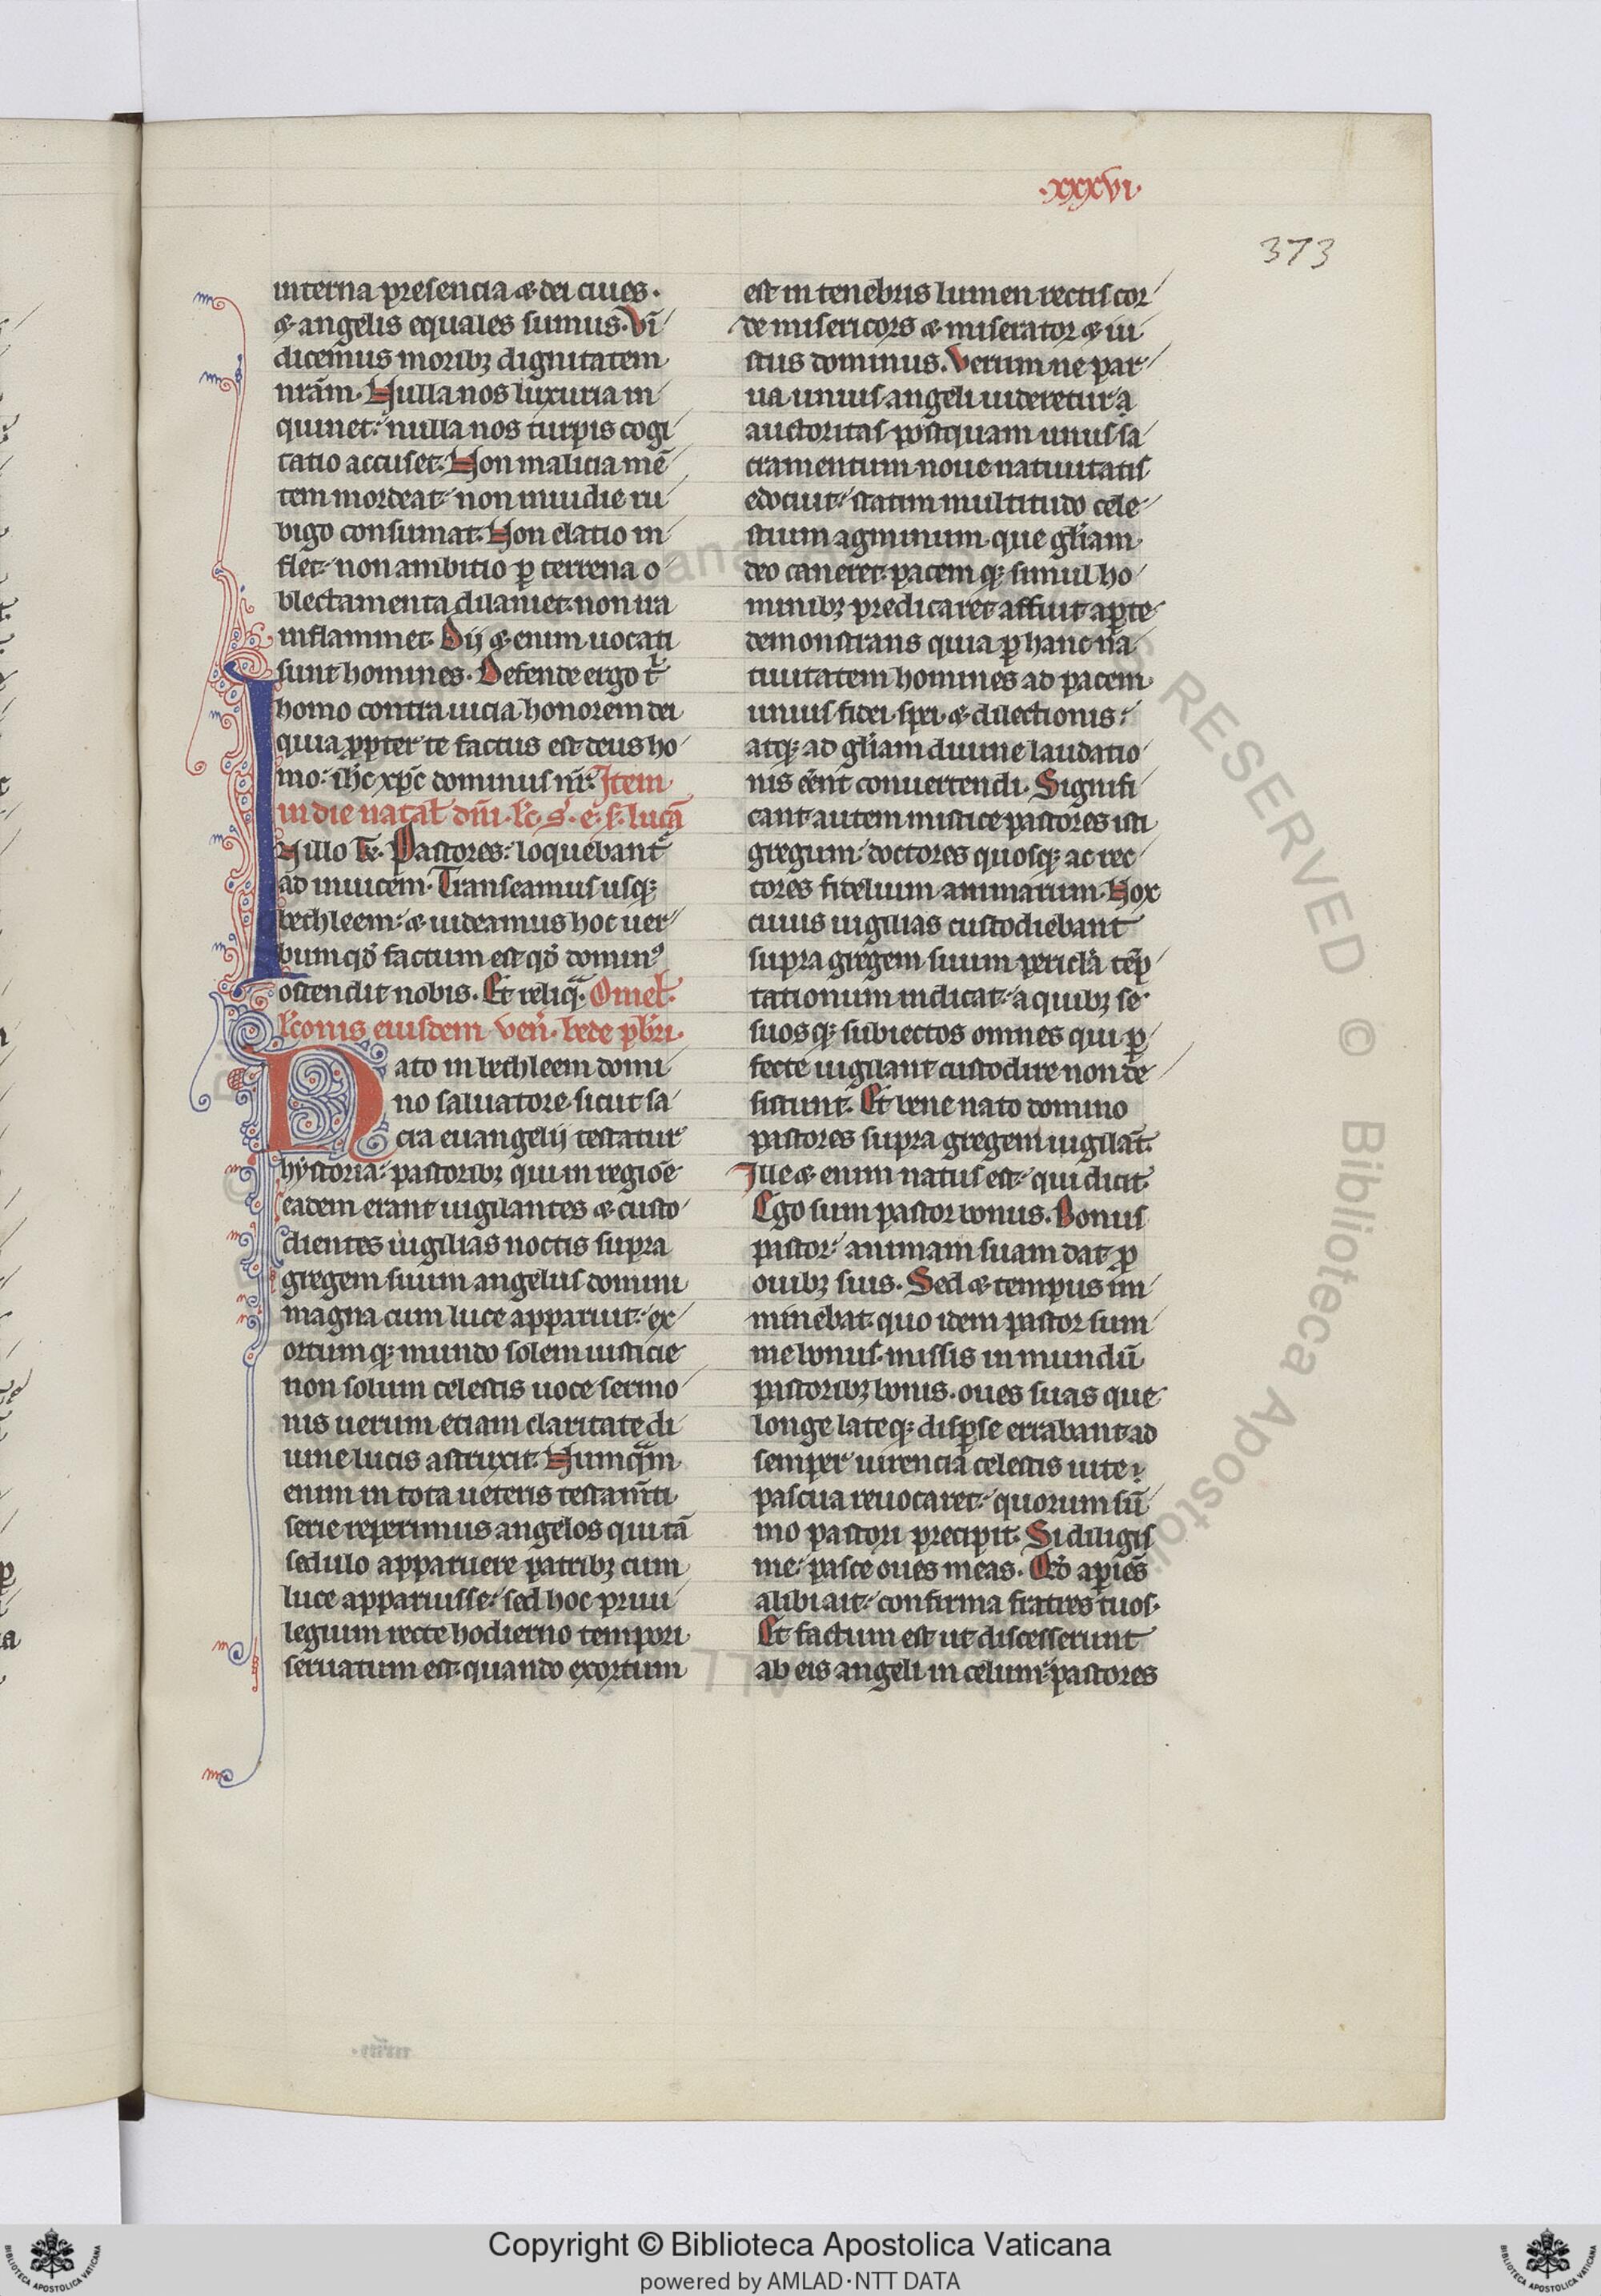 .xxxvi.
373
interna presencia & dei ciues.
& angelis equales sumus. Vī
dicemus moribꝫ dignitatem
nr̄am. Nulla nos luxuria in
quinet: nulla nos turpis cogi
tatio accuset. Non malicia mē
tem mordeat: non inuidie ru
bigo consumat. Non elatio in
flet: non ambitio ꝑ terrena o
blectamenta dilaniet. non ira
inflammet. Dij & enim uocati
sunt homines. Defende ergo t͛
homo contra uicia honorem dei
quia ꝓpter te factus est deus ho
mo: ih̄c xp̄c dominus nr̄. Item
in die natal̄ dn̄i. lc̄. s̄. e. s. lucā
IN illo t̄e. Pastores: loquebant᷑
ad inuicem. Transeamus usqꝫ
bethleem: & uideamus hoc uer
bum qd̄ factum est qd̄ domin᷒
ostendit nobis. Et reliqᷓ. Omel̄.
lc̄onis eiusdem ven̄. bede pb̄ri.
Nato in bethleem domi
no saluatore. sicut sa
cra euangelij testatur
hystoria: pastoribꝫ qui in regiōe
eadem erant uigilantes & custo
dientes uigilias noctis supra
gregem suum angelus domini
magna cum luce apparuit: ex
ortumqꝫ mundo solem iusticie
non solum celestis uoce sermo
nis uerum etiam claritate di
uine lucis astruxit. Numqᷓm
enim in tota ueteris testam̄ti
serie reperimus angelos qui tā
sedulo apparuere patribꝫ cum
luce apparuisse: sed hoc priui
legium recte hodierno tempori
seruatum est. quando exortum
est in tenebris lumen rectis cor
de misericors & miserator & iu
stus dominus. Verum ne par
ua unius angeli uideretur
auctoritas postquam unus sa
cramentum noue natiuitatis
edocuit: statim multitudo cele
stium agminum que gl̄iam
deo caneret. pacemqꝫ simul ho
minibꝫ predicaret affuit aꝑte
demonstrans quia ꝑ hanc na
tiuitatem homines ad pacem
unius fidei. spei. & dilectionis:
atqꝫ ad gl̄iam diuine laudatio
nis eēnt conuertendi. Signifi
cant autem mistice pastores isti
gregum: doctores quosqꝫ ac rec
tores fidelium animarum. Nox
cuius uigilias custodiebant
supra gregem suum pericl̄a tēp
tationum indicat: a quibꝫ se
suosqꝫ subiectos omnes qui ꝑ
fecte uigilant custodire non de
sistunt. Et bene nato domino
pastores supra gregem uigilāt.
Ille & enim natus est: qui dicit.
Ego sum pastor bonus. Bonus
pastor: animam suam dat ꝓ
ouibꝫ suis. Sed & tempus im
minebat. quo idem pastor sum
me bonus. missis in mundū
pastoribꝫ bonis. oues suas que
longe lateqꝫ disꝑse errabant ad
semper uirencia celestis uite
pascua reuocaret: quorum sū
mo pastori precipit. Si diligis
me: pasce oues meas. Qd̄ aꝑiēs
alibi ait: confirma fratres tuos.
Et factum est ut discesserunt
ab eis angeli in celum: pastores
Copyright © Biblioteca Apostolica Vaticana
powered by AMLAD·NTT DATA